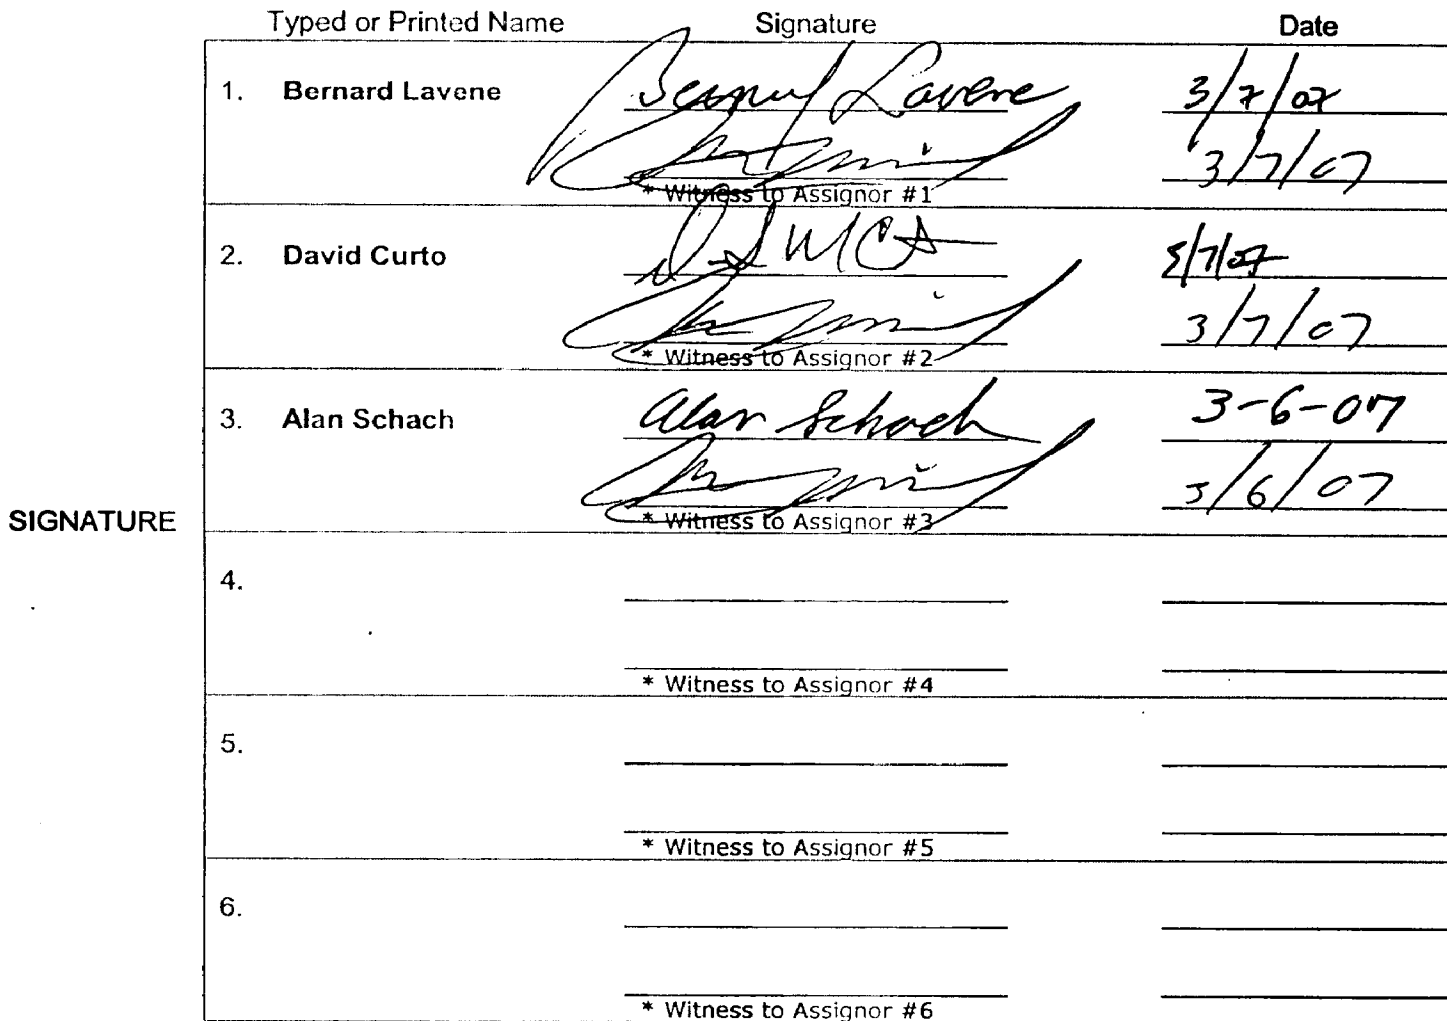 Typed or Printed Name Signature Date
1. Bernard Lavene Bernard Lavene 3/7/07
3/7/07
* Witness to Assignor #1
2. David Curto 3/7/07
3/7/07
* Witness to Assignor #2
3. Alan Schach Alan Schach 3-6-07
3/6/07
* Witness to Assignor #3
SIGNATURE
4.
* Witness to Assignor #4
5.
* Witness to Assignor #5
6.
* Witness to Assignor #6